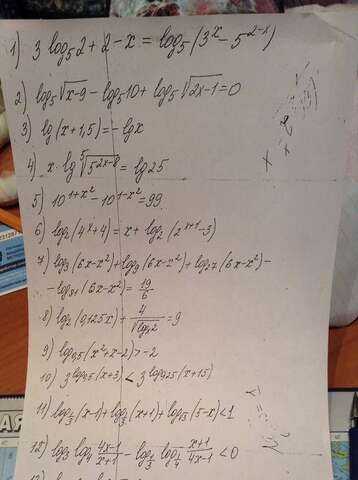 1) 3 log₅2 + 2 - x = log₅(3ˣ - 5²⁻ˣ)
2) log₅√x-9 - log₅10 + log₅√2x-1 = 0
3) lg(x+1,5) = -lgx
4) x · lg ⁵√5²ˣ⁻⁸ = lg25
5) 10¹⁺ˣ² - 10¹⁻ˣ² = 99
6) log₂(4ˣ+4) = x + log₂(2ˣ⁺¹-3)
7) log₃(6x-x²) + log₉(6x-x²) + log₂₇(6x-x²) -
- log₈₁(6x-x²) = 19/6
8) log₂(0,125x) + = 9
9) log₀,₅(x²+x-2) > -2
10) 3 log₀,₅(x+3) < 3 log₀,₂₅(x+15)
11) (x-1) + (x+1) + (5-x) < 1
12) log₃ log₄ 4x-1/x+1 - log₁/₃ log₁/₄ x+1/4x-1 < 0